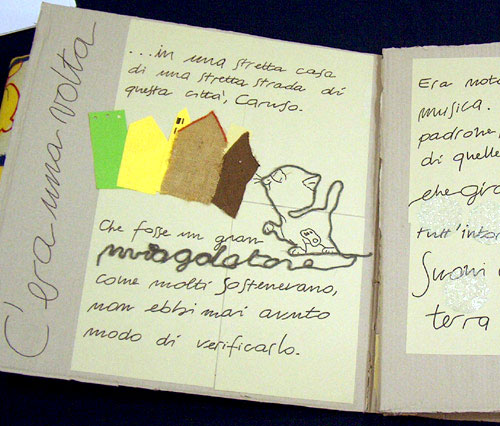 C'era una volta
...in una stretta casa
di una stretta strada di
questa città, Caruso.
Che fosse un gran
miagolatore
come molti sostenevano,
non ebbi mai avuto
modo di verificarlo.
Era noto
musica.
padrone,
di quelle
che giro
tutt'intor
Suoni
terra